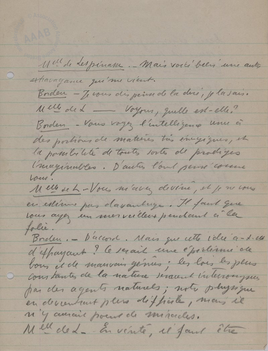 Melle de Lespinasse — Mais voici bien une autre
extravagance qui me vient.
Bordeu — Je vous dispense de la dire, je la sais.
Melle de L — Voyons, quelle est-elle?
Bordeu — Vous voyez l'intelligence unie à
des portions de matière très énergiques, et
la possibilité de toutes sortes de prodiges
imaginables. D'autres l'ont pensé comme
vous.
Melle de L — Vous m'avez devinée, et je ne vous
en estime pas davantage. Il faut que
vous ayez un merveilleux penchant à la
folie.
Bordeu. — D'accord. Mais que cette idée a-t-elle
d'effrayant? Ce serait une épidémie de
bons et de mauvais génies; les lois les plus
constantes de la nature seraient interrompues
par des agents naturels; notre physique
en deviendrait plus difficile, mais il
n'y aurait point de miracles.
Melle de L — En vérité, il faut être